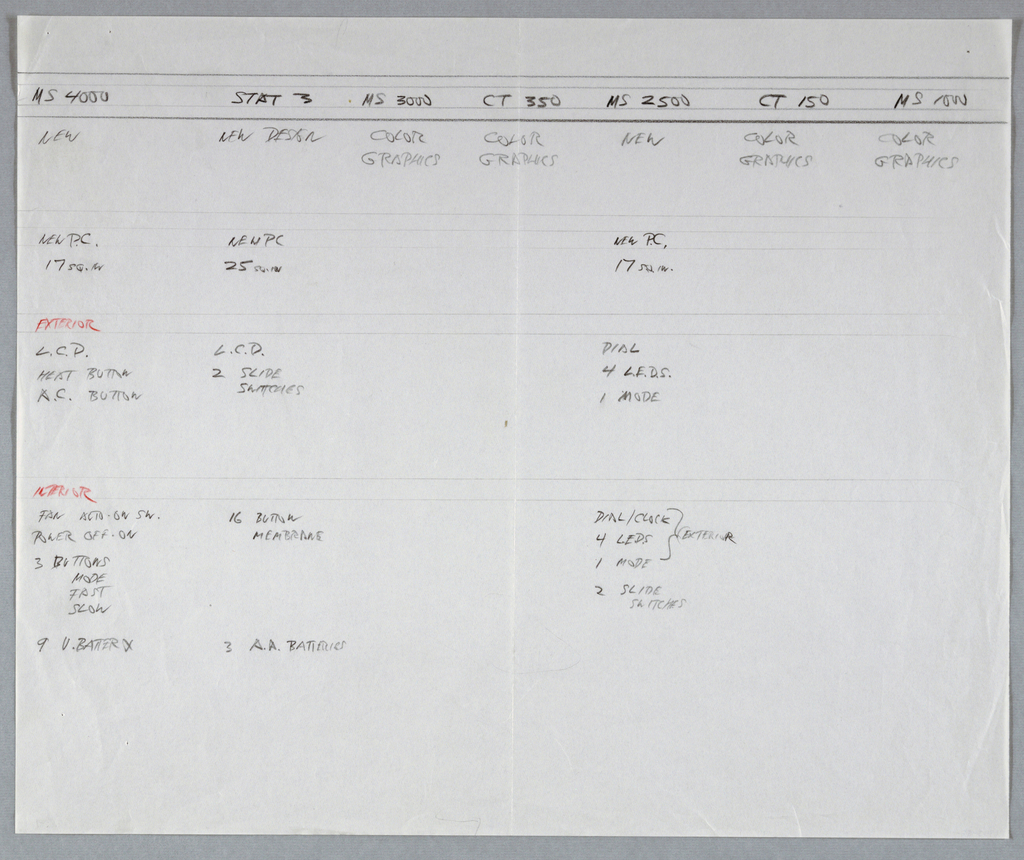 MS 4000 STAT 3 MS 3000 CT 350 MS 2500 CT 150 MS 1000
NEW NEW DESIGN COLOR COLOR NEW COLOR COLOR
GRAPHICS GRAPHICS GRAPHICS GRAPHICS
NEW P.C. NEW PC NEW P.C.
17 SQ. IN 25 SQ. IN 17 SQ. IN.
EXTERIOR
L.C.D. L.C.D. DIAL
HEAT BUTTON 2 SLIDE 4 L.E.D.S.
A.C. BUTTON SWITCHES 1 MODE
INTERIOR
FAN AUTO-ON SW. 16 BUTTON DIAL/CLOCK
POWER OFF-ON MEMBRANE 4 LEDS EXTERIOR
3 BUTTONS 1 MODE
MODE
FAST 2 SLIDE
SLOW SWITCHES
9 V. BATTERY 3 A.A. BATTERIES